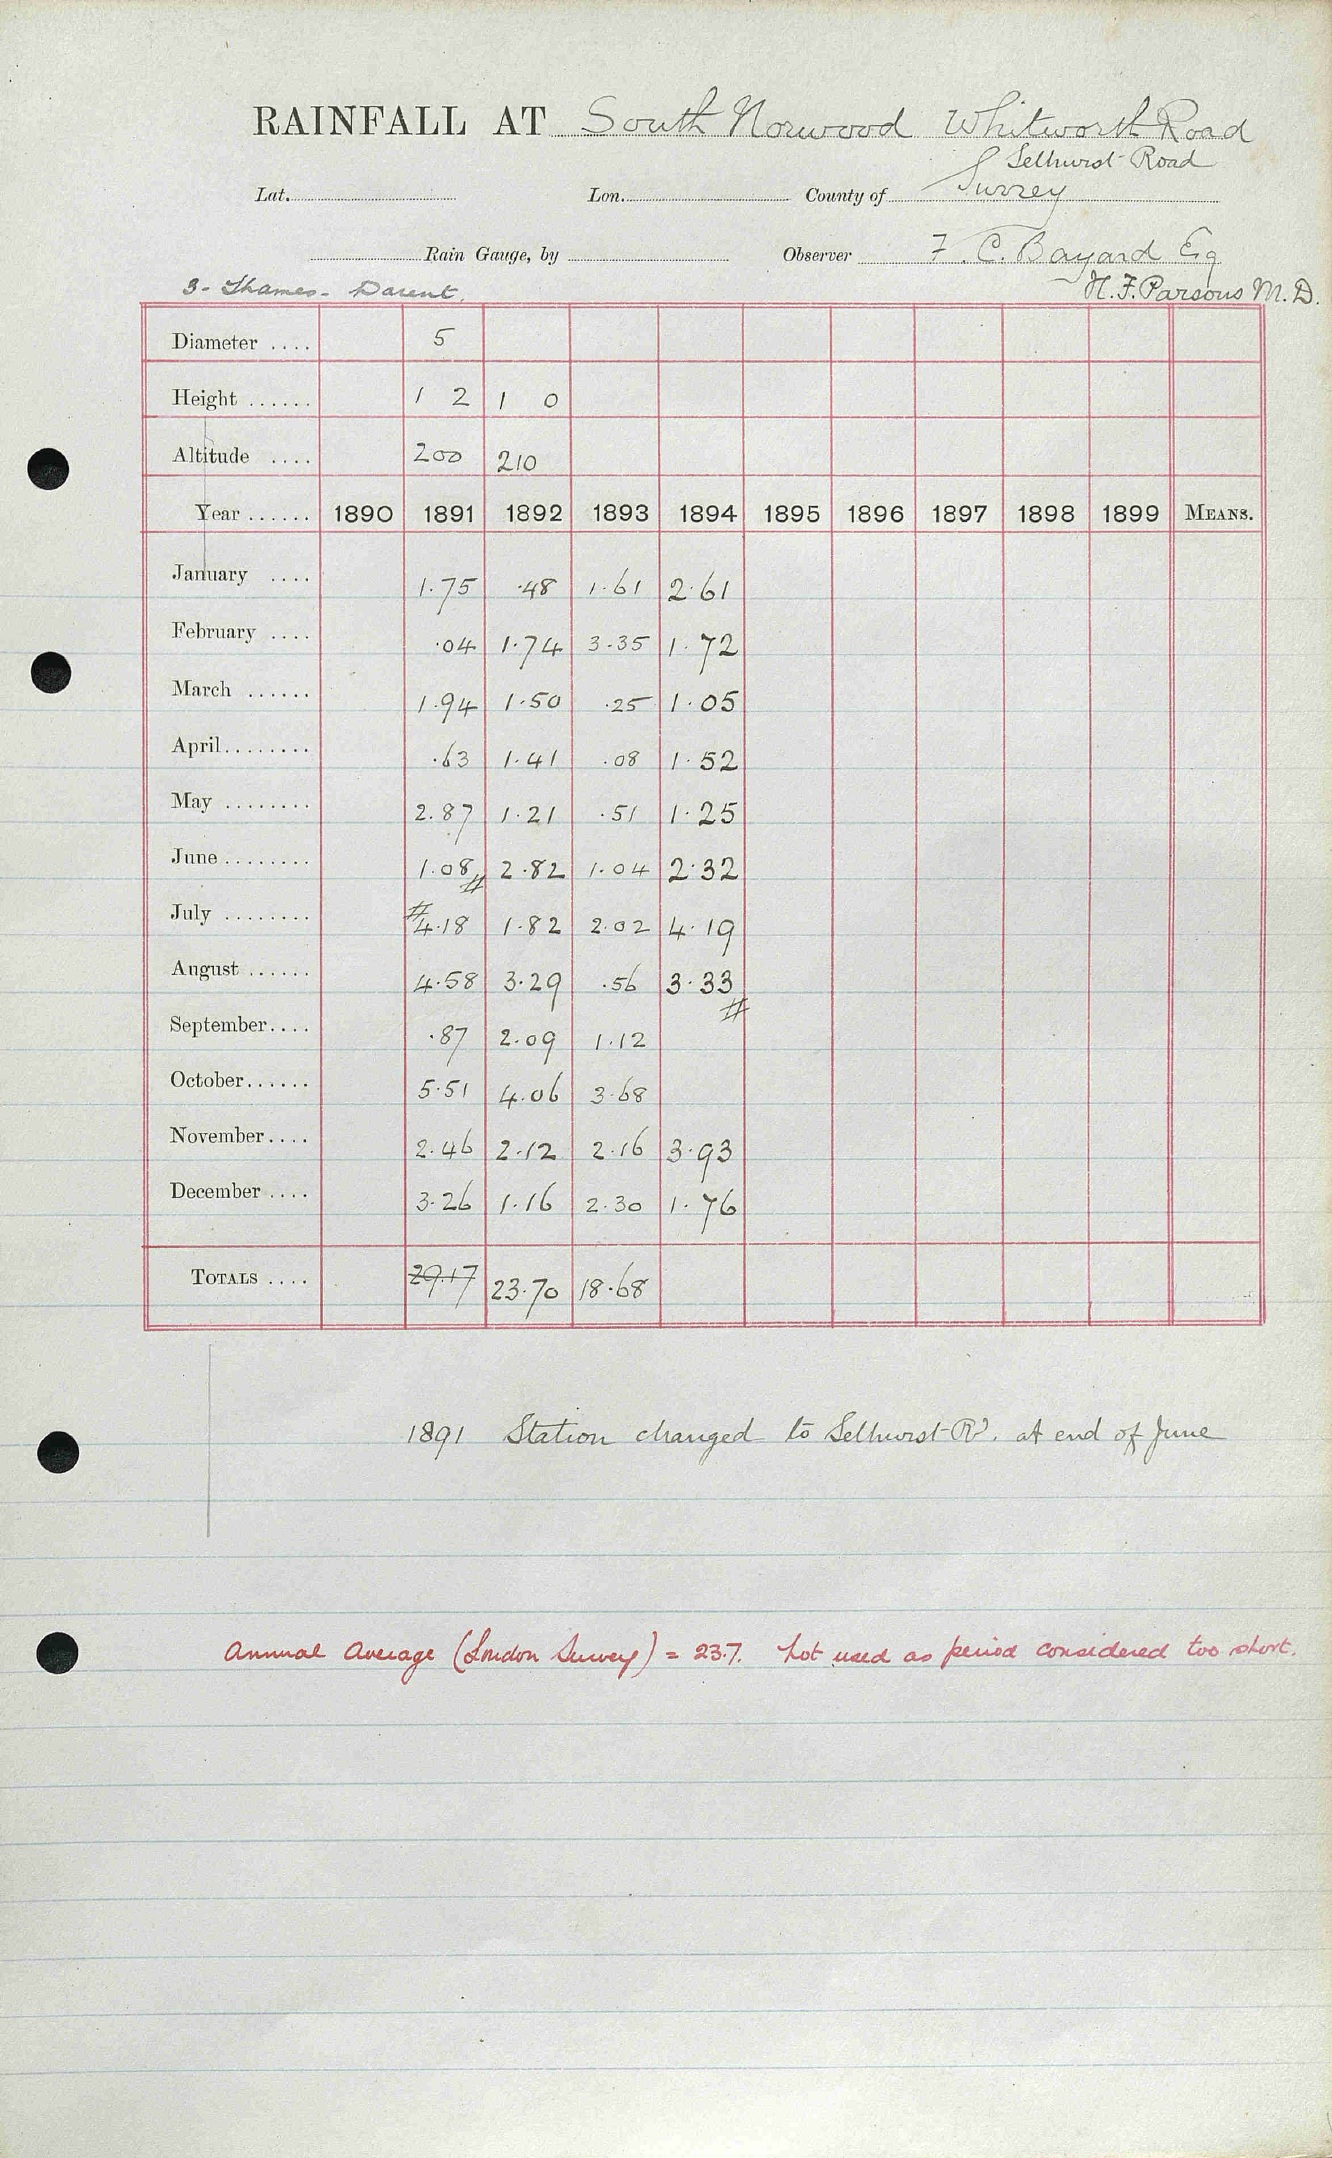 RAINFALL AT South Norwood Whitworth Road
Selhurst Road
Lat. Lon. County of Surrey
Rain Gauge, by Observer F. C. Bayard Esq
3 - Thames - Darent. H. F. Parsons M. D.
Diameter .... 5
Height ...... 1 2 1 0
Altitude .... 200 210
Year ...... 1890 1891 1892 1893 1894 1895 1896 1897 1898 1899 MEANS.
January .... 1.75 .48 1.61 2.61
February .... .04 1.74 3.35 1.72
March ...... 1.94 1.50 .25 1.05
April ........ .63 1.41 .08 1.52
May ........ 2.87 1.21 .51 1.25
June ........ 1.08 # 2.82 1.04 2.32
July ........ # 4.18 1.82 2.02 4.19
August ...... 4.58 3.29 .56 3.33 #
September .... .87 2.09 1.12
October ...... 5.51 4.06 3.68
November .... 2.46 2.12 2.16 3.93
December .... 3.26 1.16 2.30 1.76
TOTALS .... 29.17 23.70 18.68
1891 Station changed to Selhurst Rd. at end of June
Annual Average (London Survey) = 23.7. Not used as period considered too short.